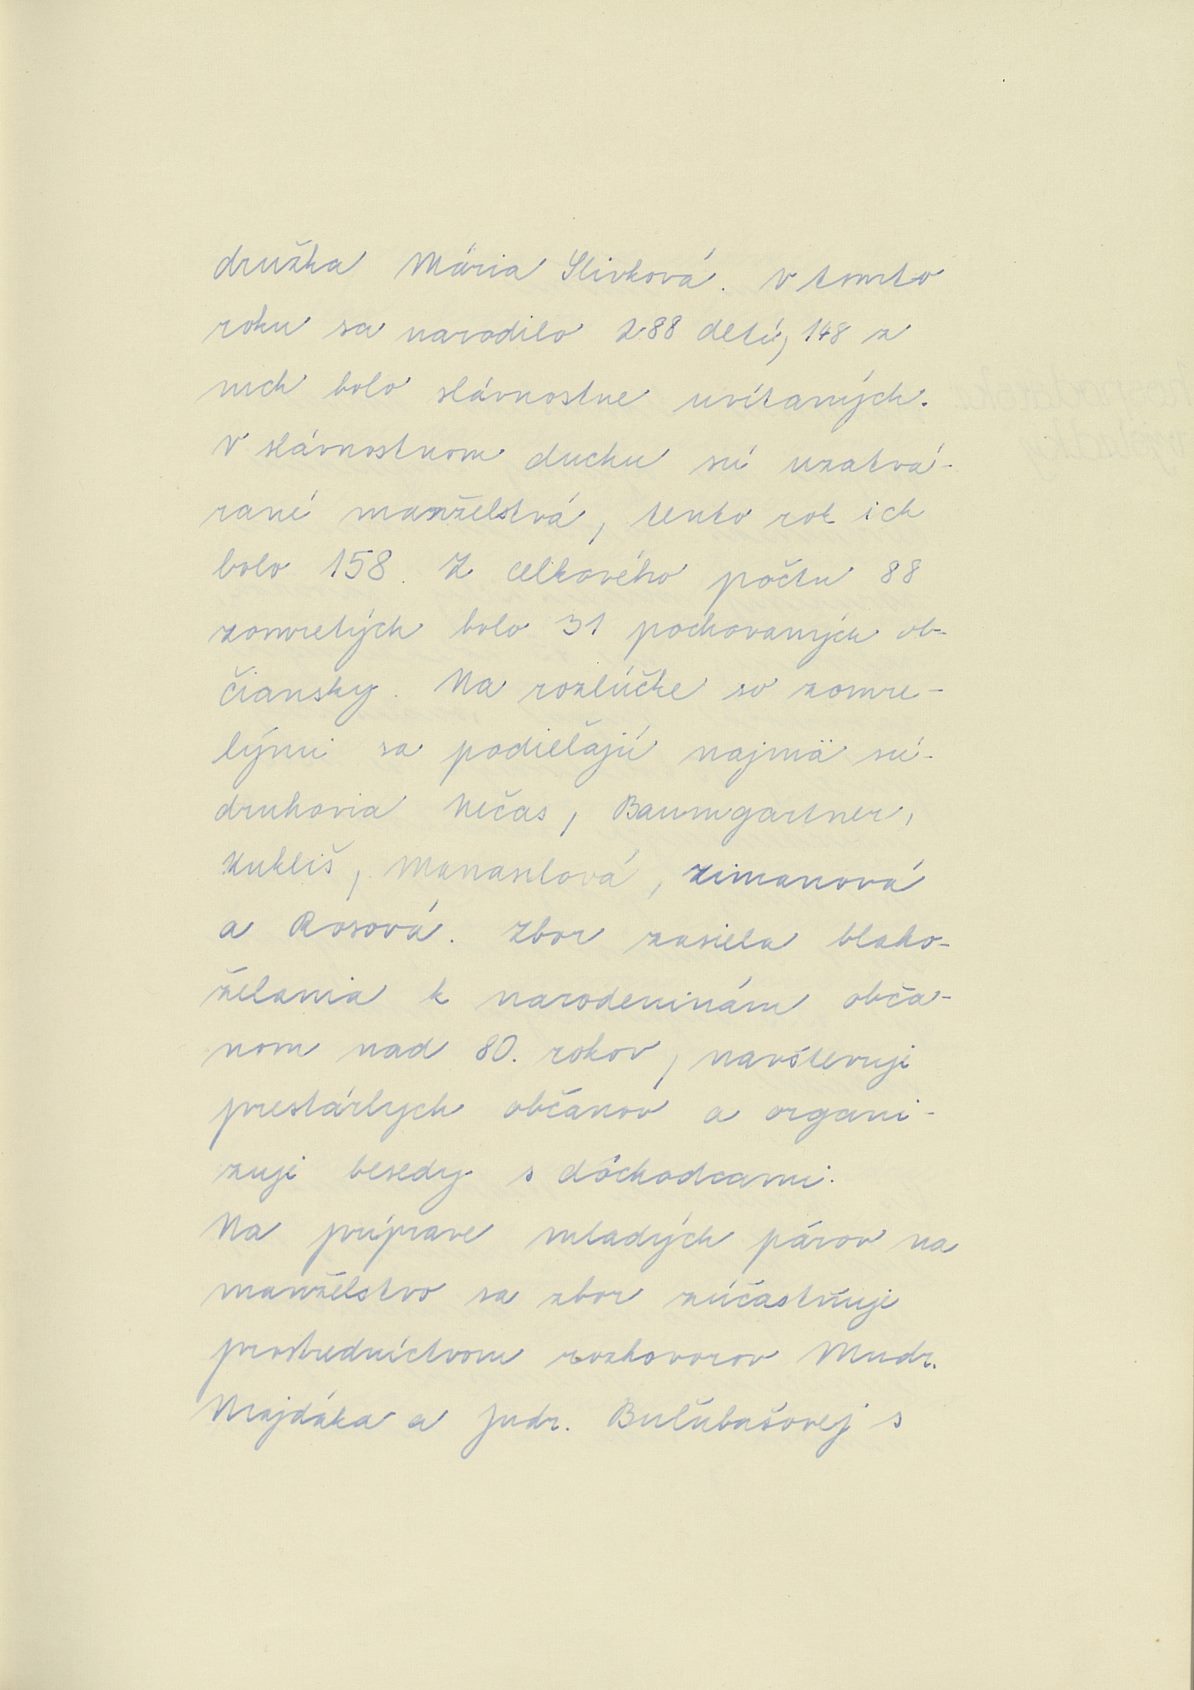 družka Mária Slivková. V tomto
roku sa narodilo 288 detí, 148 z
nich bolo slávnostne uvítaných.
V slávnostnom duchu sú uzatvá-
rané manželstvá, tento rok ich
bolo 158. Z celkového počtu 88
zomretých bolo 31 pochovaných ob-
čiansky. Na rozlúčke so zomre-
lými sa podieľajú najmä sú-
druhovia Nečas, Baumgartner,
Kukliš, Zimanová
a Rosová. Zbor zasiela blaho-
želania k narodeninám obča-
nom nad 80. rokov, navštevuje
prestárlych občanov a organi-
zuje besedy s dôchodcami.
Na príprave mladých párov na
manželstvo sa zbor zúčastňuje
prostredníctvom rozhovorov Mudr.
Majdáka a Judr. Buľubašovej s